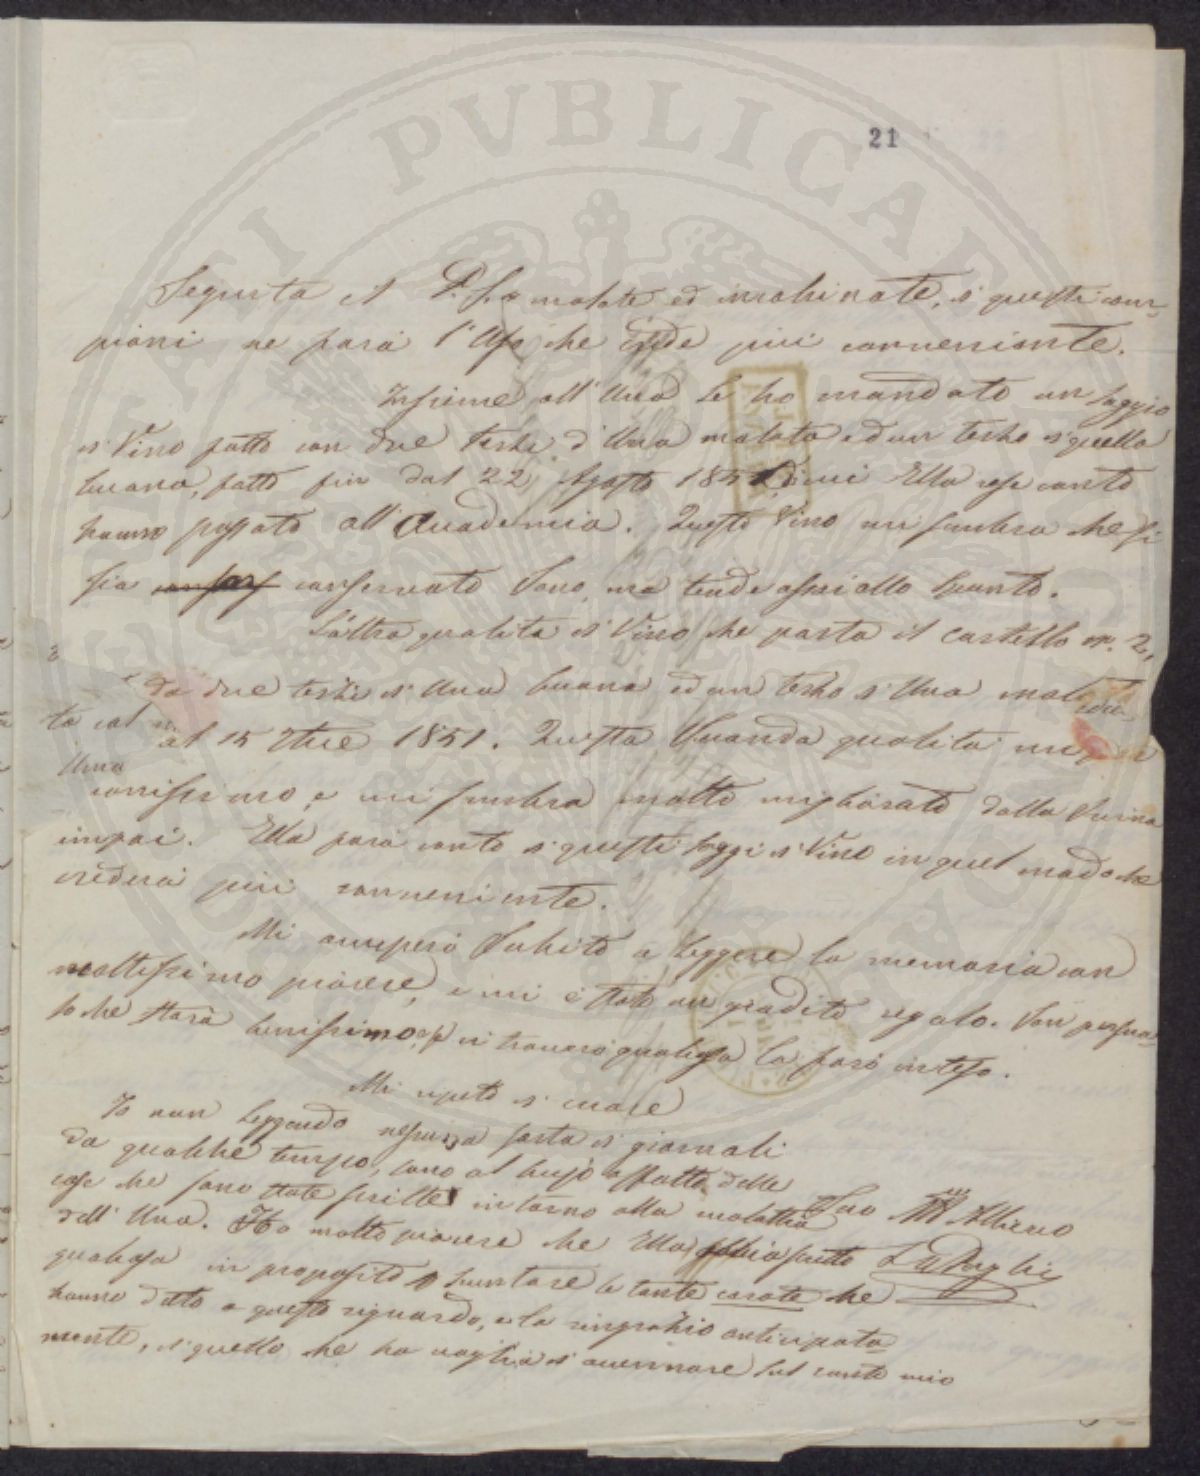 21
Seguita il malate ed inchinate, di questi cam-
pioni ne farà l'uso che crede più conveniente.
Insieme all'Uva Le ho mandato un saggio
di Vino fatto con due terzi d'Uva malata ed un terzo di quella
buona, fatto fin dal 22 Agosto 1851, di cui Ella rese conto
hanno passato all'Accademia. Questo Vino mi sembra che si
sia conservato sano, ma tende assai allo spunto.
L'altra qualità di Vino che porta il cartello n.º 2,
da due terzi di Uva buona ed un terzo di Uva malata
al 15 1851. Questa seconda qualità mi
sembra molto migliorato dalla
impai. Ella farà conto di questi saggi di Vino in quel modo che
crederà più conveniente.
Mi occuperò subito a leggere la memoria con
moltissimo piacere, e mi è stato un gradito regalo. Son persua-
so che starà benissimo, e se vi troverò qualcosa la farò intesa.
Mi ripeto di cuore
Suo Allievo
Io non leggendo nessuna sorta di giornali
da qualche tempo, sono al bujo affatto delle
cose che sono state scritte intorno alla malattia
dell'Uva. Ho molto piacere che Ella abbia scritto
qualcosa in proposito a smentare le tante che
hanno detto a questo riguardo, e la ringrazio anticipata
mente, di quello che ha voglia di accennare sul conto mio